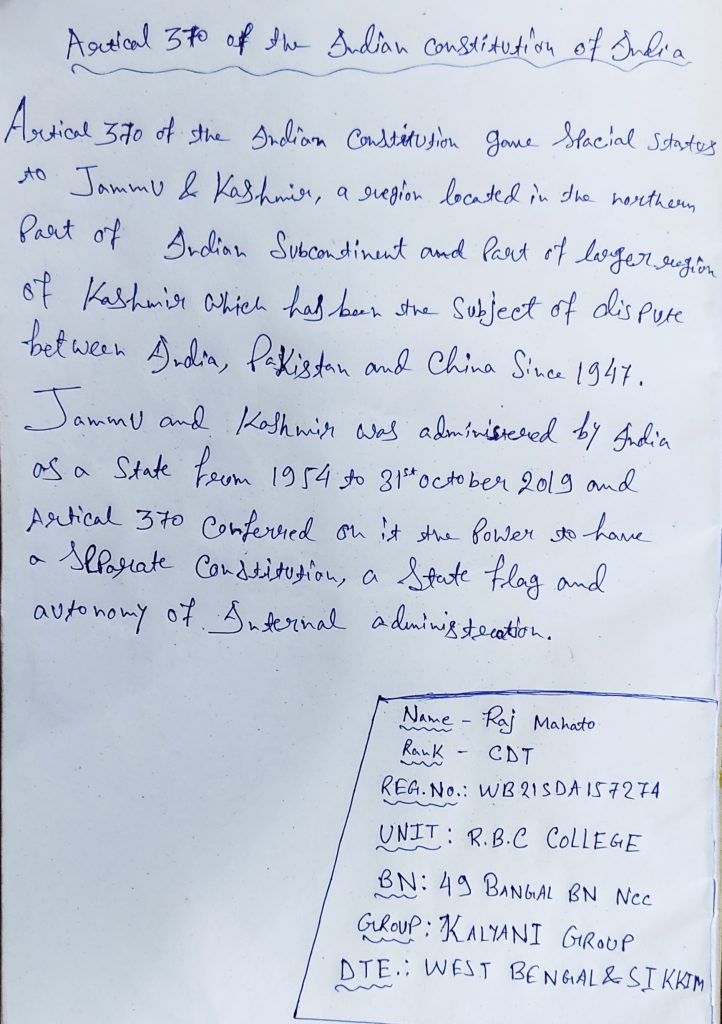 Artical 370 of the Indian constitution of India
Artical 370 of the Indian Constitution gave Spacial status
to Jammu & Kashmir, a region located in the northern
Part of Indian Subcontinent and Part of larger region
of Kashmir which has been the Subject of dispute
between India, Pakistan and China Since 1947.
Jammu and Kashmir was administered by India
as a State from 1954 to 31st october 2019 and
Artical 370 Conferred on it the Power to have
a SePParate Constitution, a State flag and
autonomy of Internal administration.
Name - Raj Mahato
Rank - CDT
REG.No.: WB21SDA157274
UNIT: R.B.C COLLEGE
BN: 49 BANGAL BN NCC
GROUP: KALYANI GROUP
DTE.: WEST BENGAL & SIKKIM